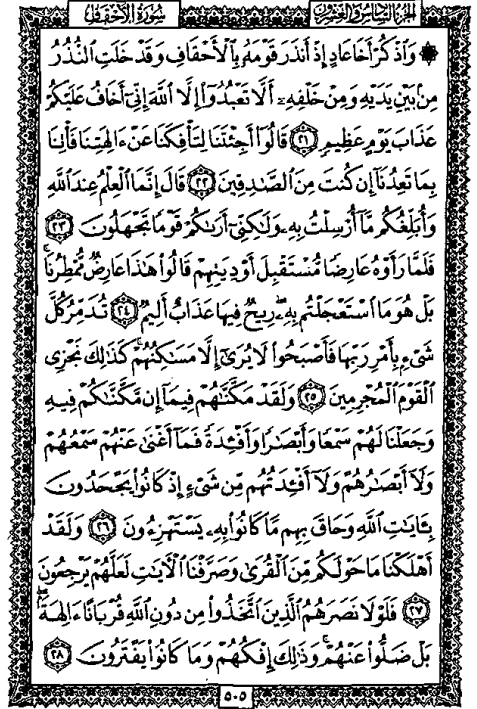 الجزء السادس والعشرون
سورة الأحقاف
۞ وَٱذۡكُرۡ أَخَا عَادٍ إِذۡ أَنذَرَ قَوۡمَهُۥ بِٱلۡأَحۡقَافِ وَقَدۡ خَلَتِ ٱلنُّذُرُ
مِنۢ بَيۡنِ يَدَيۡهِ وَمِنۡ خَلۡفِهِۦٓ أَلَّا تَعۡبُدُوٓاْ إِلَّا ٱللَّهَ إِنِّيٓ أَخَافُ عَلَيۡكُمۡ
عَذَابَ يَوۡمٍ عَظِيمٖ ٢١ قَالُوٓاْ أَجِئۡتَنَا لِتَأۡفِكَنَا عَنۡ ءَالِهَتِنَا فَأۡتِنَا
بِمَا تَعِدُنَآ إِن كُنتَ مِنَ ٱلصَّٰدِقِينَ ٢٢ قَالَ إِنَّمَا ٱلۡعِلۡمُ عِندَ ٱللَّهِ
وَأُبَلِّغُكُم مَّآ أُرۡسِلۡتُ بِهِۦ وَلَٰكِنِّيٓ أَرَىٰكُمۡ قَوۡمٗا تَجۡهَلُونَ ٢٣
فَلَمَّا رَأَوۡهُ عَارِضٗا مُّسۡتَقۡبِلَ أَوۡدِيَتِهِمۡ قَالُواْ هَٰذَا عَارِضٞ مُّمۡطِرُنَاۚ
بَلۡ هُوَ مَا ٱسۡتَعۡجَلۡتُم بِهِۦۖ رِيحٞ فِيهَا عَذَابٌ أَلِيمٞ ٢٤ تُدَمِّرُ كُلَّ
شَيۡءِۭ بِأَمۡرِ رَبِّهَا فَأَصۡبَحُواْ لَا يُرَىٰٓ إِلَّا مَسَٰكِنُهُمۡۚ كَذَٰلِكَ نَجۡزِي
ٱلۡقَوۡمَ ٱلۡمُجۡرِمِينَ ٢٥ وَلَقَدۡ مَكَّنَّٰهُمۡ فِيمَآ إِن مَّكَّنَّٰكُمۡ فِيهِ
وَجَعَلۡنَا لَهُمۡ سَمۡعٗا وَأَبۡصَٰرٗا وَأَفۡـِٔدَةٗ فَمَآ أَغۡنَىٰ عَنۡهُمۡ سَمۡعُهُمۡ
وَلَآ أَبۡصَٰرُهُمۡ وَلَآ أَفۡـِٔدَتُهُم مِّن شَيۡءٍ إِذۡ كَانُواْ يَجۡحَدُونَ
بِـَٔايَٰتِ ٱللَّهِ وَحَاقَ بِهِم مَّا كَانُواْ بِهِۦ يَسۡتَهۡزِءُونَ ٢٦ وَلَقَدۡ
أَهۡلَكۡنَا مَا حَوۡلَكُم مِّنَ ٱلۡقُرَىٰ وَصَرَّفۡنَا ٱلۡأٓيَٰتِ لَعَلَّهُمۡ يَرۡجِعُونَ
٢٧ فَلَوۡلَا نَصَرَهُمُ ٱلَّذِينَ ٱتَّخَذُواْ مِن دُونِ ٱللَّهِ قُرۡبَانًا ءَالِهَةَۢۖ
بَلۡ ضَلُّواْ عَنۡهُمۡۚ وَذَٰلِكَ إِفۡكُهُمۡ وَمَا كَانُواْ يَفۡتَرُونَ ٢٨
٥٠٥